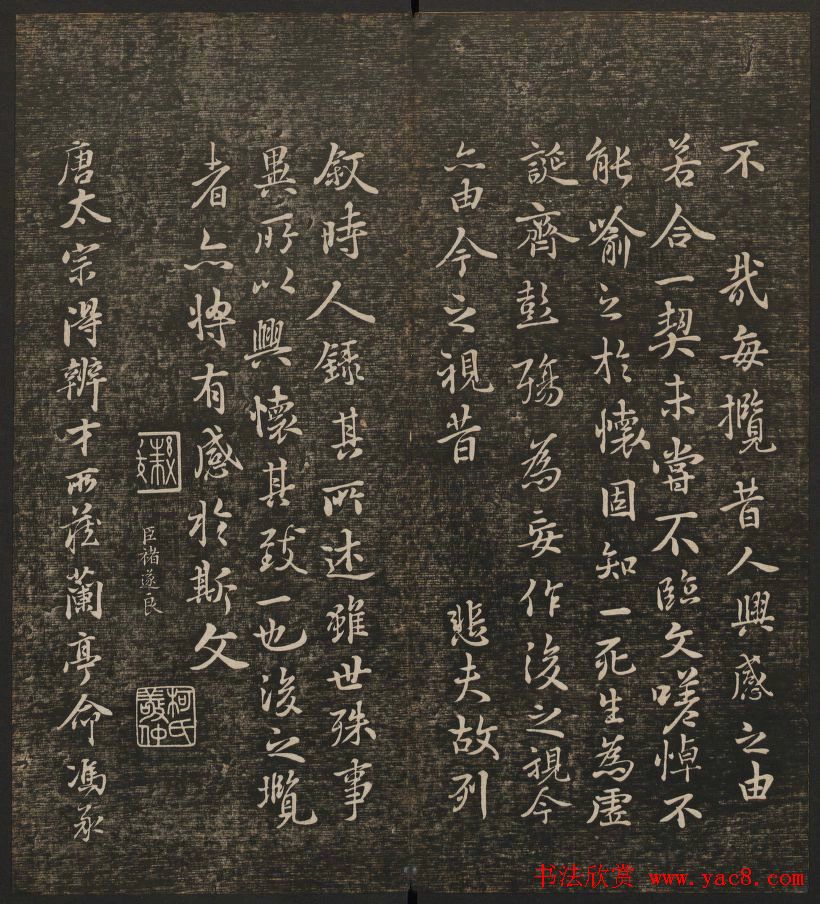 不 哉每攬昔人興感之由
若合一契未嘗不臨文嗟悼不
能喻之於懷固知一死生為虛
誕齊彭殤為妄作後之視今
亦由今之視昔 悲夫故列
敘時人錄其所述雖世殊事
異所以興懷其致一也後之攬
者亦將有感於斯文
臣褚遂良
柯氏敬仲
唐太宗得辨才所藏蘭亭命馮承
书法欣赏 www.yac8.com